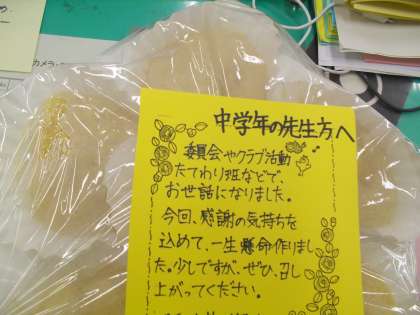 中学年の先生方へ
委員会やクラブ活動
たてわり班などで、
お世話になりました。
今回、感謝の気持ちを
込めて、一生懸命作りまし
た。少しですが、ぜひ、召し
上がってください。
カメラ